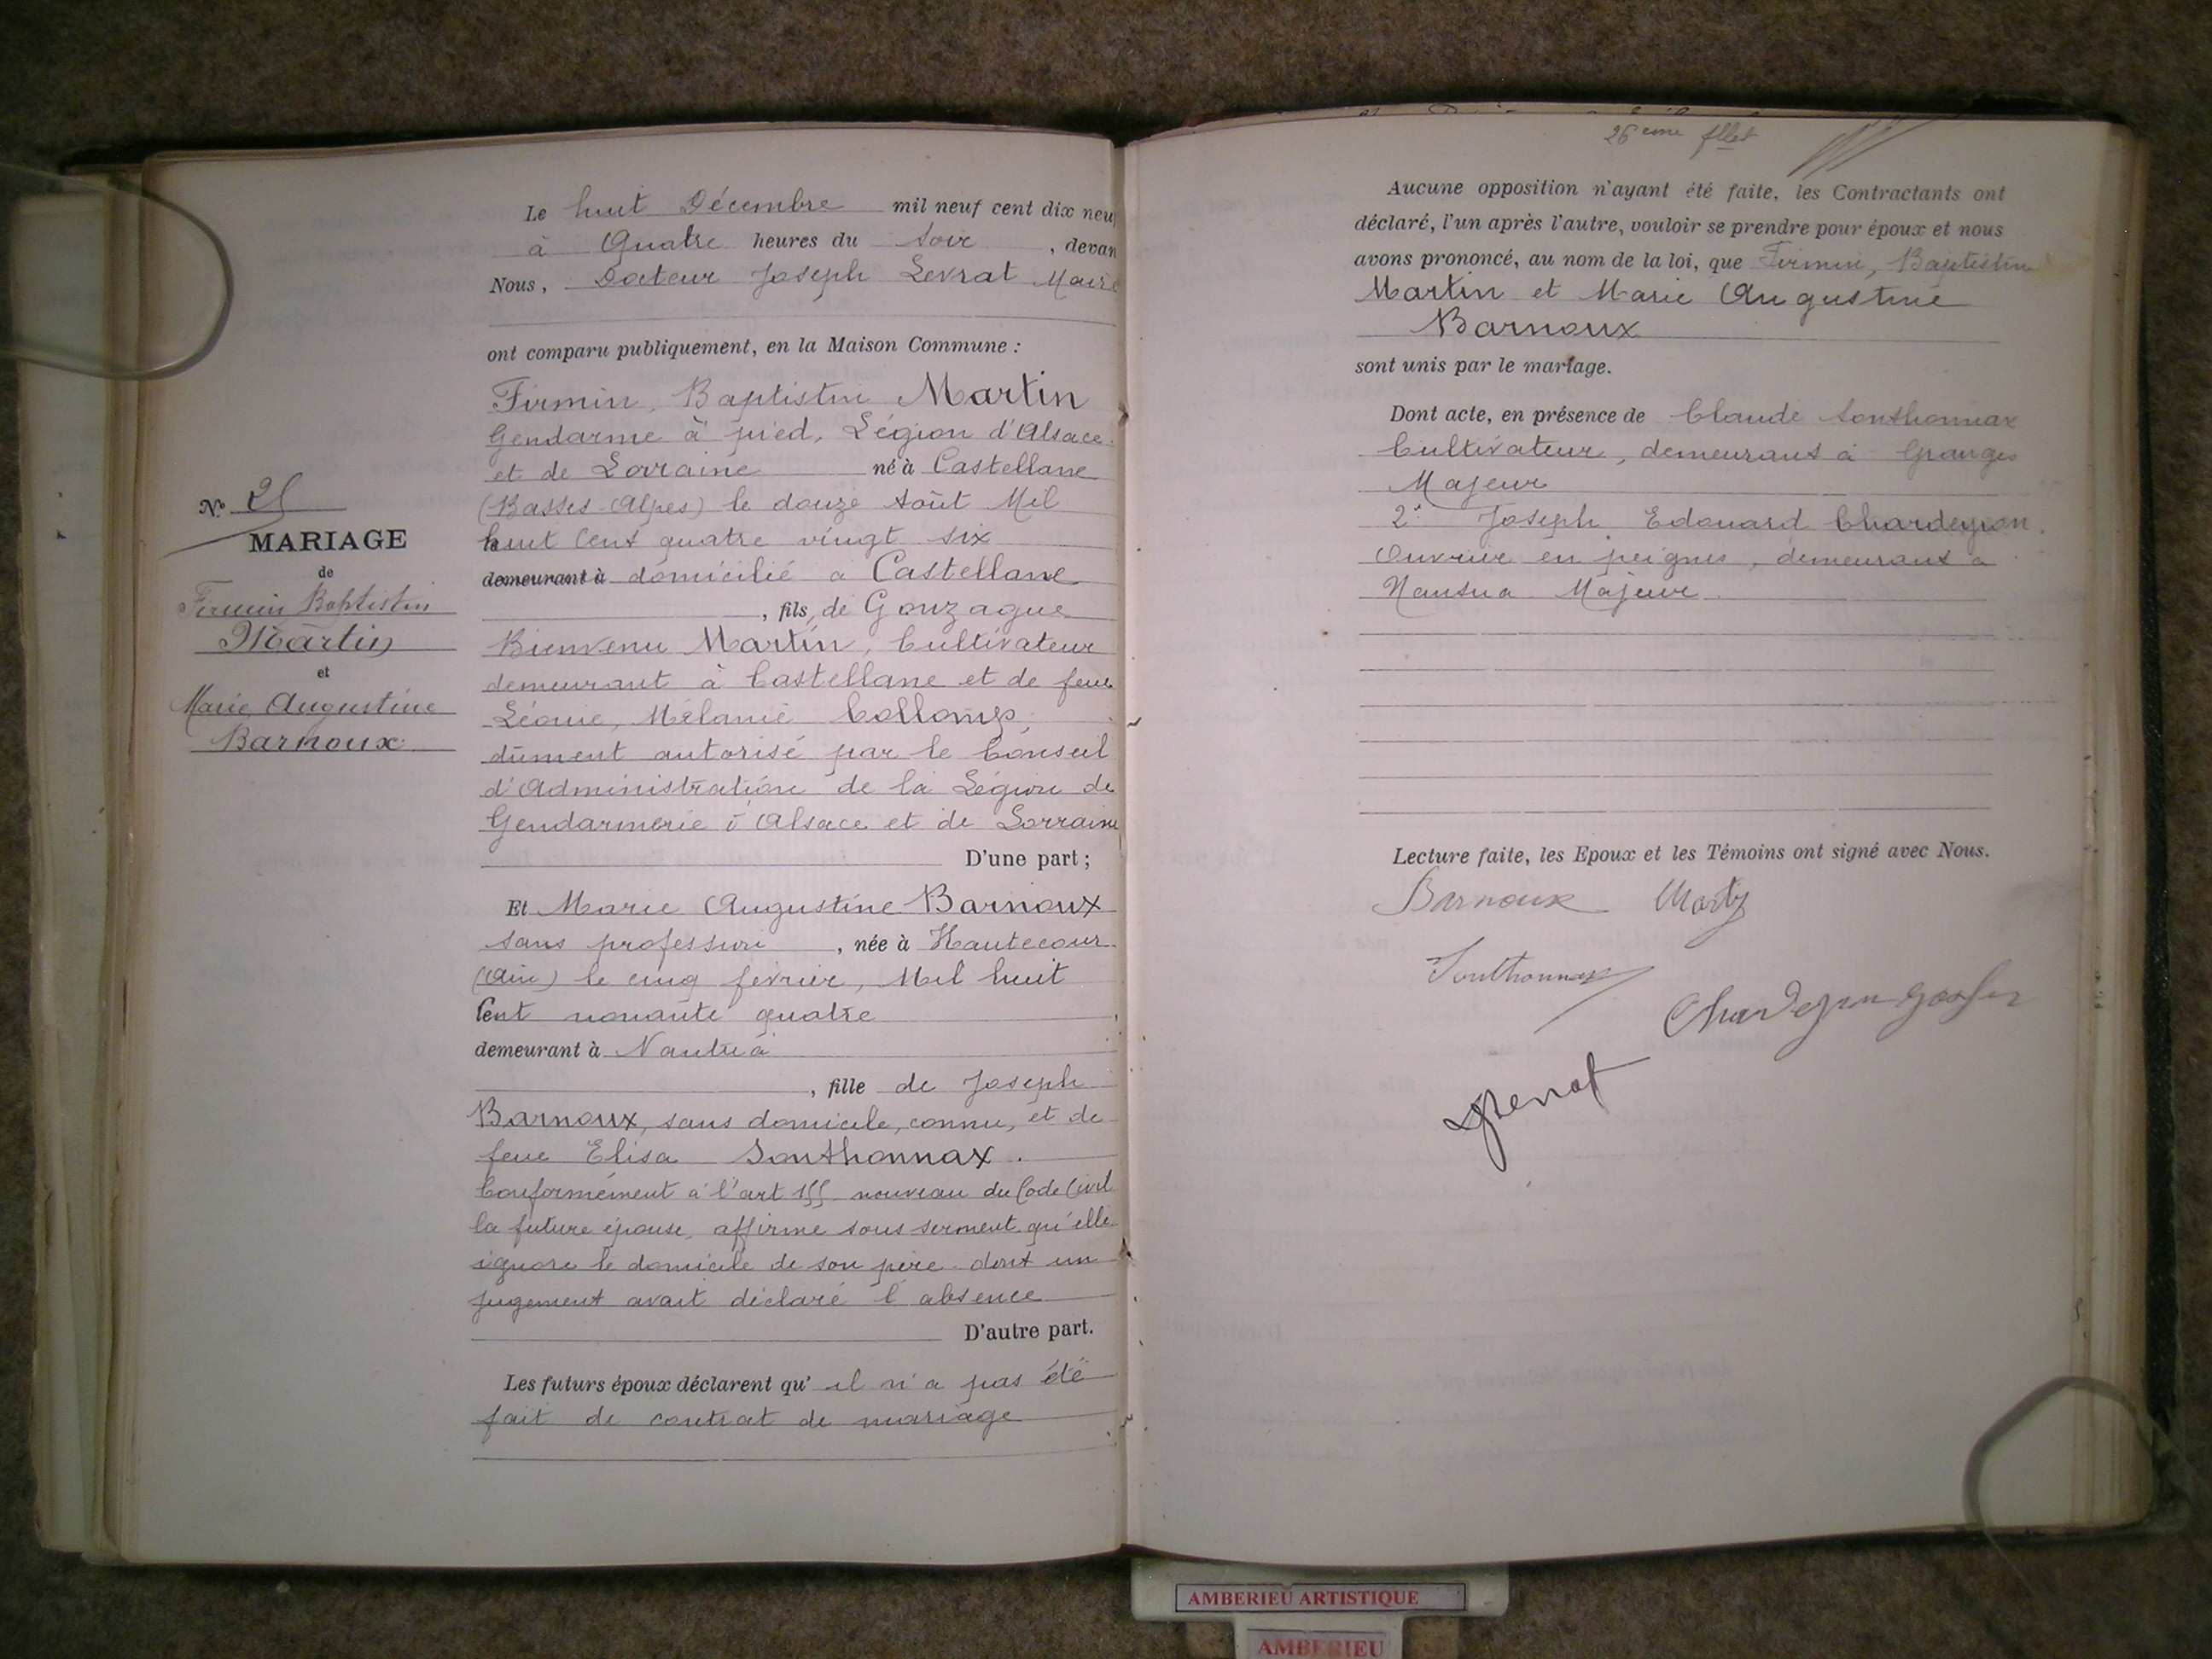 Le huit Décembre mil neuf cent dix neuf
à Quatre heures du Soir, devan
Nous, Docteur Joseph Levrat Maire
ont comparu publiquement, en la Maison Commune :
Firmin, Baptistin Martin
Gendarme à pied, Légion d'Alsace
et de Lorraine né à Castellane
(Basses-Alpes) le douze Août Mil
huit Cent quatre vingt six
demeurant à domicilié a Castellane
, fils de Gonzague
Bienvenu Martin, Cultivateur
demeurant à Castellane et de feue
Léonie, Mélanie Collomp,
dûment autorisé par le Conseil
d'Administration de la Légion de
Gendarmerie d'Alsace et de Lorraine
D'une part ;
Et Marie Augustine Barnoux
sans profession, née à Hautecour
(Ain) le cinq février, Mil huit
Cent nonante quatre
demeurant à Nantua
, fille de Joseph
Barnoux, sans domicile, connu, et de
feue Elisa Sonthonnax.
Conformément à l'art 155 nouveau du Code Civil
la future épouse, affirme sous serment qu'elle
ignore le domicile de son père dont un
jugement avait déclaré l'absence
D'autre part.
Les futurs époux déclarent qu'il n'a pas été
fait de contrat de mariage
N° 25
MARIAGE
de
Firmin Baptistin
Martin
et
Marie Augustine
Barnoux
26eme fllet
Aucune opposition n'ayant été faite, les Contractants ont
déclaré, l'un après l'autre, vouloir se prendre pour époux et nous
avons prononcé, au nom de la loi, que Firmin, Baptistin
Martin et Marie Augustine
Barnoux
sont unis par le mariage.
Dont acte, en présence de Claude Sonthonnax
Cultivateur, demeurant à Granges
Majeur
2° Joseph Edouard Chardeyron.
Ouvrier en peignes, demeurant à
Nantua Majeur.
Lecture faite, les Epoux et les Témoins ont signé avec Nous.
Barnoux Martin
Sonthonnax
Chardeyron Joseph
Levrat
AMBERIEU ARTISTIQUE
AMBERIEU